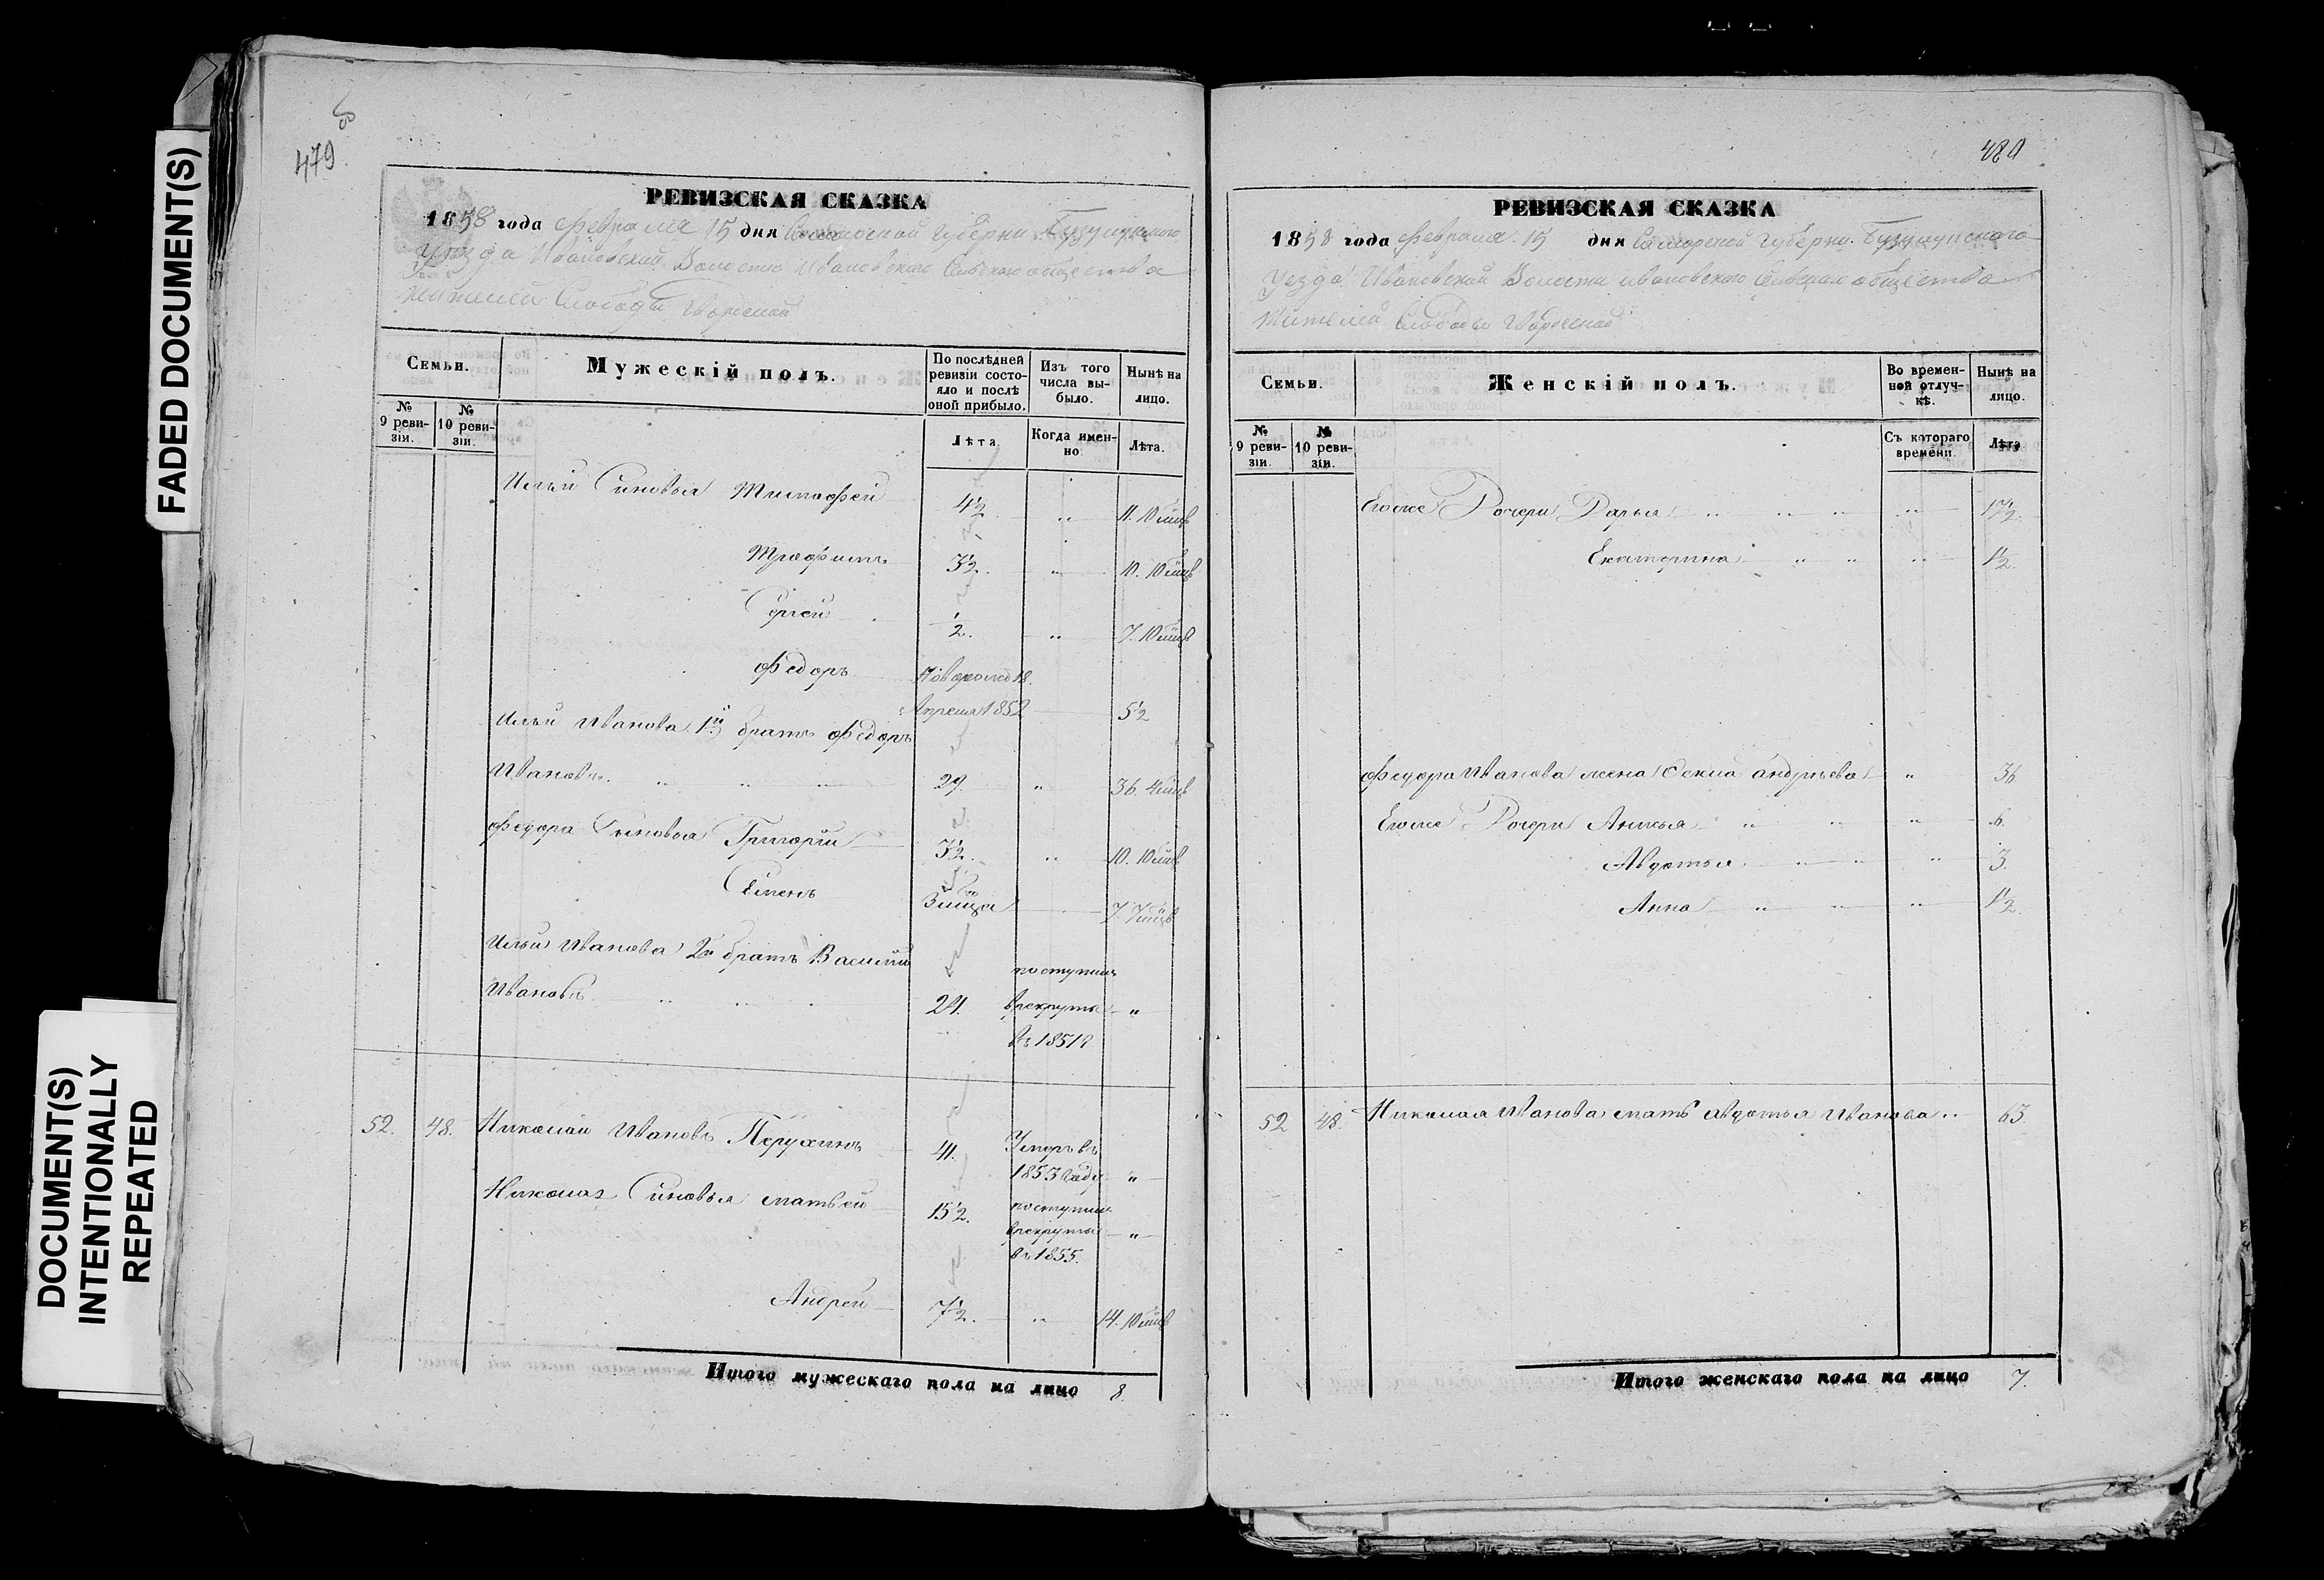 FADED DOCUMENT(S)
DOCUMENT(S)
INTENTIONALLY
REPEATED
479
РЕВИЗСКАЯ СКАЗКА
1858 года Февраля 15 дня Самарской Губерни Бузулукскаго
Уезда Ивановской Волости Ивановскаго Сельскаго общества
жителей Слободы
Семьи.
Мужескій полъ.
По послѣдней ревизіи состояло и послѣ оной прибыло.
Изъ того числа выбыло.
Нынѣ на лицо.
№ 9 ревизіи.
№ 10 ревизіи.
Лѣта.
Когда именно
Лѣта.
Ильи Сыновья Тимофей 4½ " 11. 10 мцв
Трофимъ 3½ " 10. 10 мцв
Сергей ½ " 7. 10 мцв
Федоръ Новорожд 18.
Апреля 1852 5½
Ильи Иванова 1й братъ Федоръ
Ивановъ 29 " 36. 4 мцв
Федора Сыновья Григорий 3½ " 10. 10 мцв
Семенъ 3 мцца 7. 7 мцв
Ильи Иванова 2й братъ Василий
Ивановъ 24. поступилъ
врекруты "
въ 1851
52. 48. Николай Ивановъ 41. Умеръ въ
1853 году "
Николая Сыновья Матвей 15½. поступилъ
врекруты "
въ 1855.
Андрей 7½. " 14. 10 мцв
Итого мужескаго пола на лицо 8.
480
РЕВИЗСКАЯ СКАЗКА
1858 года Февраля 15 дня Самарской Губерни Бузулукскаго
Уезда Ивановской Волости Ивановскаго Сельскаго общества
Жителей Слободы
Семьи.
Женскій полъ.
Во временной отлучкѣ.
Нынѣ на лицо.
№ 9 ревизіи.
№ 10 ревизіи.
Съ котораго времени.
Лѣта
Егоже Дочери Дарья " 17½.
Екатерина " 1½.
Федора Иванова жена Андреева " 36
Егоже Дочери Анисья " 6.
Авдотья " 3.
Анна " 1½.
52 48. Николая Иванова мать Авдотья Иванова 63.
Итого женскаго пола на лицо 7.